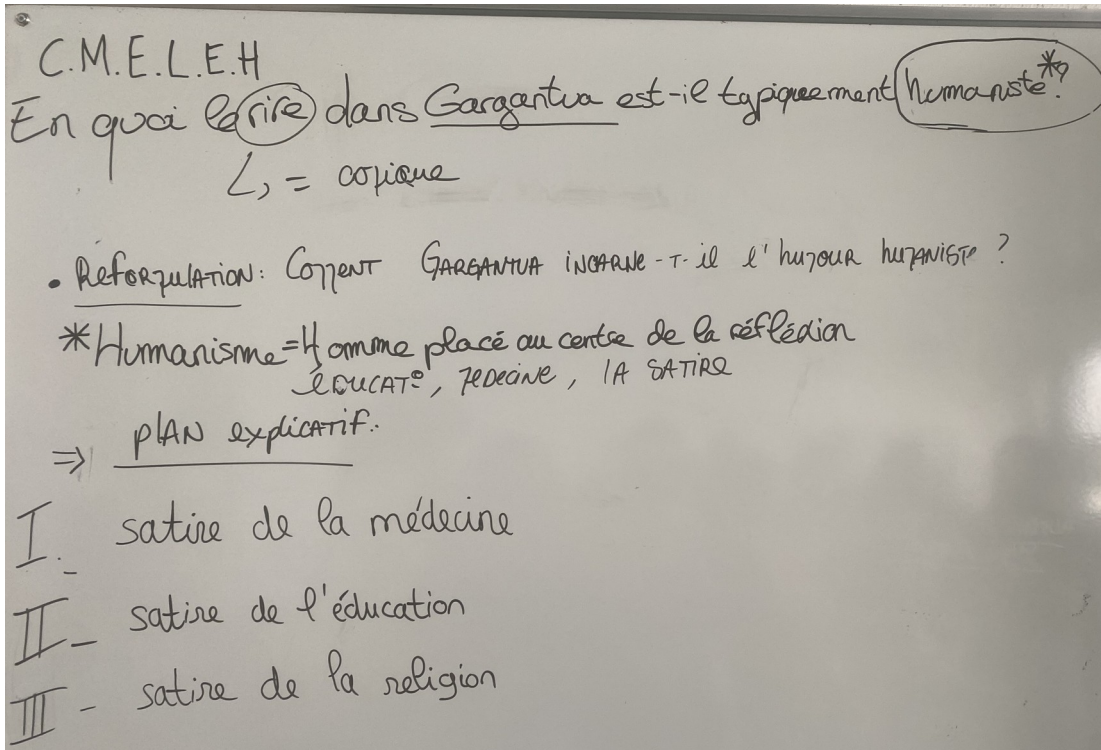 C.M.E.L.E.H
En quoi le rire dans Gargantua est-il typiquement humaniste*?
↳ = comique
• Reformulation: Comment GARGANTUA incarne-t-il l'humour humaniste ?
*Humanisme = Homme placé au centre de la réflexion
éducat°, médecine, la satire
⇒ plan explicatif.
I. satire de la médecine
II - satire de l'éducation
III - satire de la religion